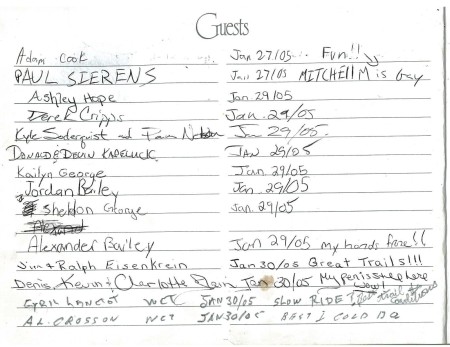 Guests
Adam Cook Jan 27/05 Fun!!
PAUL SIERENS Jan 27/05 MITCHELL M is Gay
Ashley Hope Jan 29/05
Derek Cripps Jan. 29/05
Kyle and Jan 29/05.
DONALD & DEVIN JAN 29/05
Kailyn George Jan 29/05
Jordan Bailey Jan 29/05
Sheldon George Jan. 29/05
Alexander Bailey Jan 29/05 my hands froze!!
Jim & Ralph Eisenkrein Jan 30/05 Great Trails!!!
Denis, Kevin & Charlotte Jan 30/05 My Penis slept here
Wow!
CYRIL JAN 30/05 SNOW RIDE trail conditions
AL CROSSON JAN 30/05 BEST I COLD DO